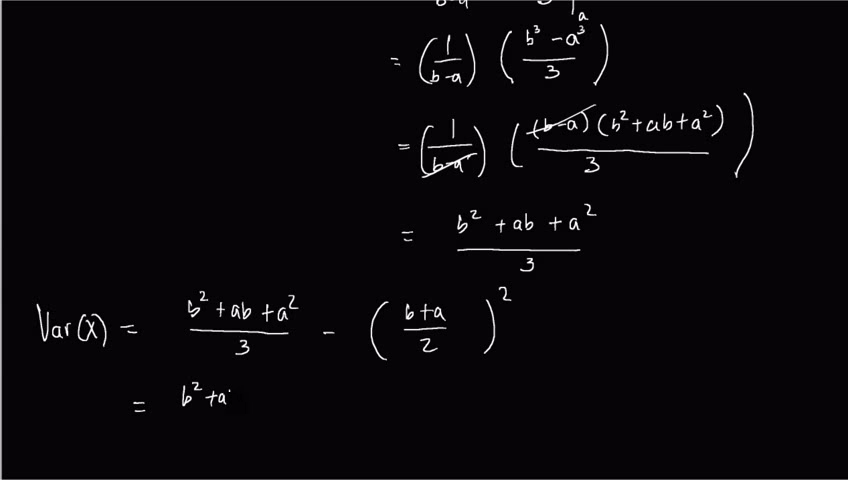 = (1/(b-a)) ((b³ - a³)/3)
= (1/(b-a)) ((b-a)(b² + ab + a²)/3)
= (b² + ab + a²)/3
Var(X) = (b² + ab + a²)/3 - ((b+a)/2)²
= b² + a